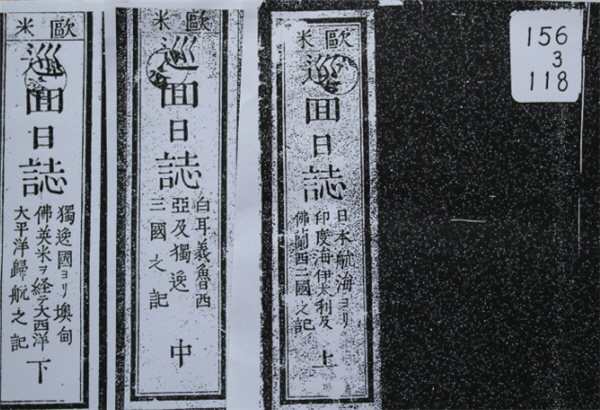 156
3
118
歐米
巡囬日誌
日本航海ヨリ
印度海伊太利及
佛蘭西二國之記
上
歐米
巡囬日誌
白耳義魯西
亞及獨逸
三國之記
中
歐米
巡囬日誌
獨逸國ヨリ墺甸
佛英米ヲ経テ大西洋
大平洋歸航之記
下